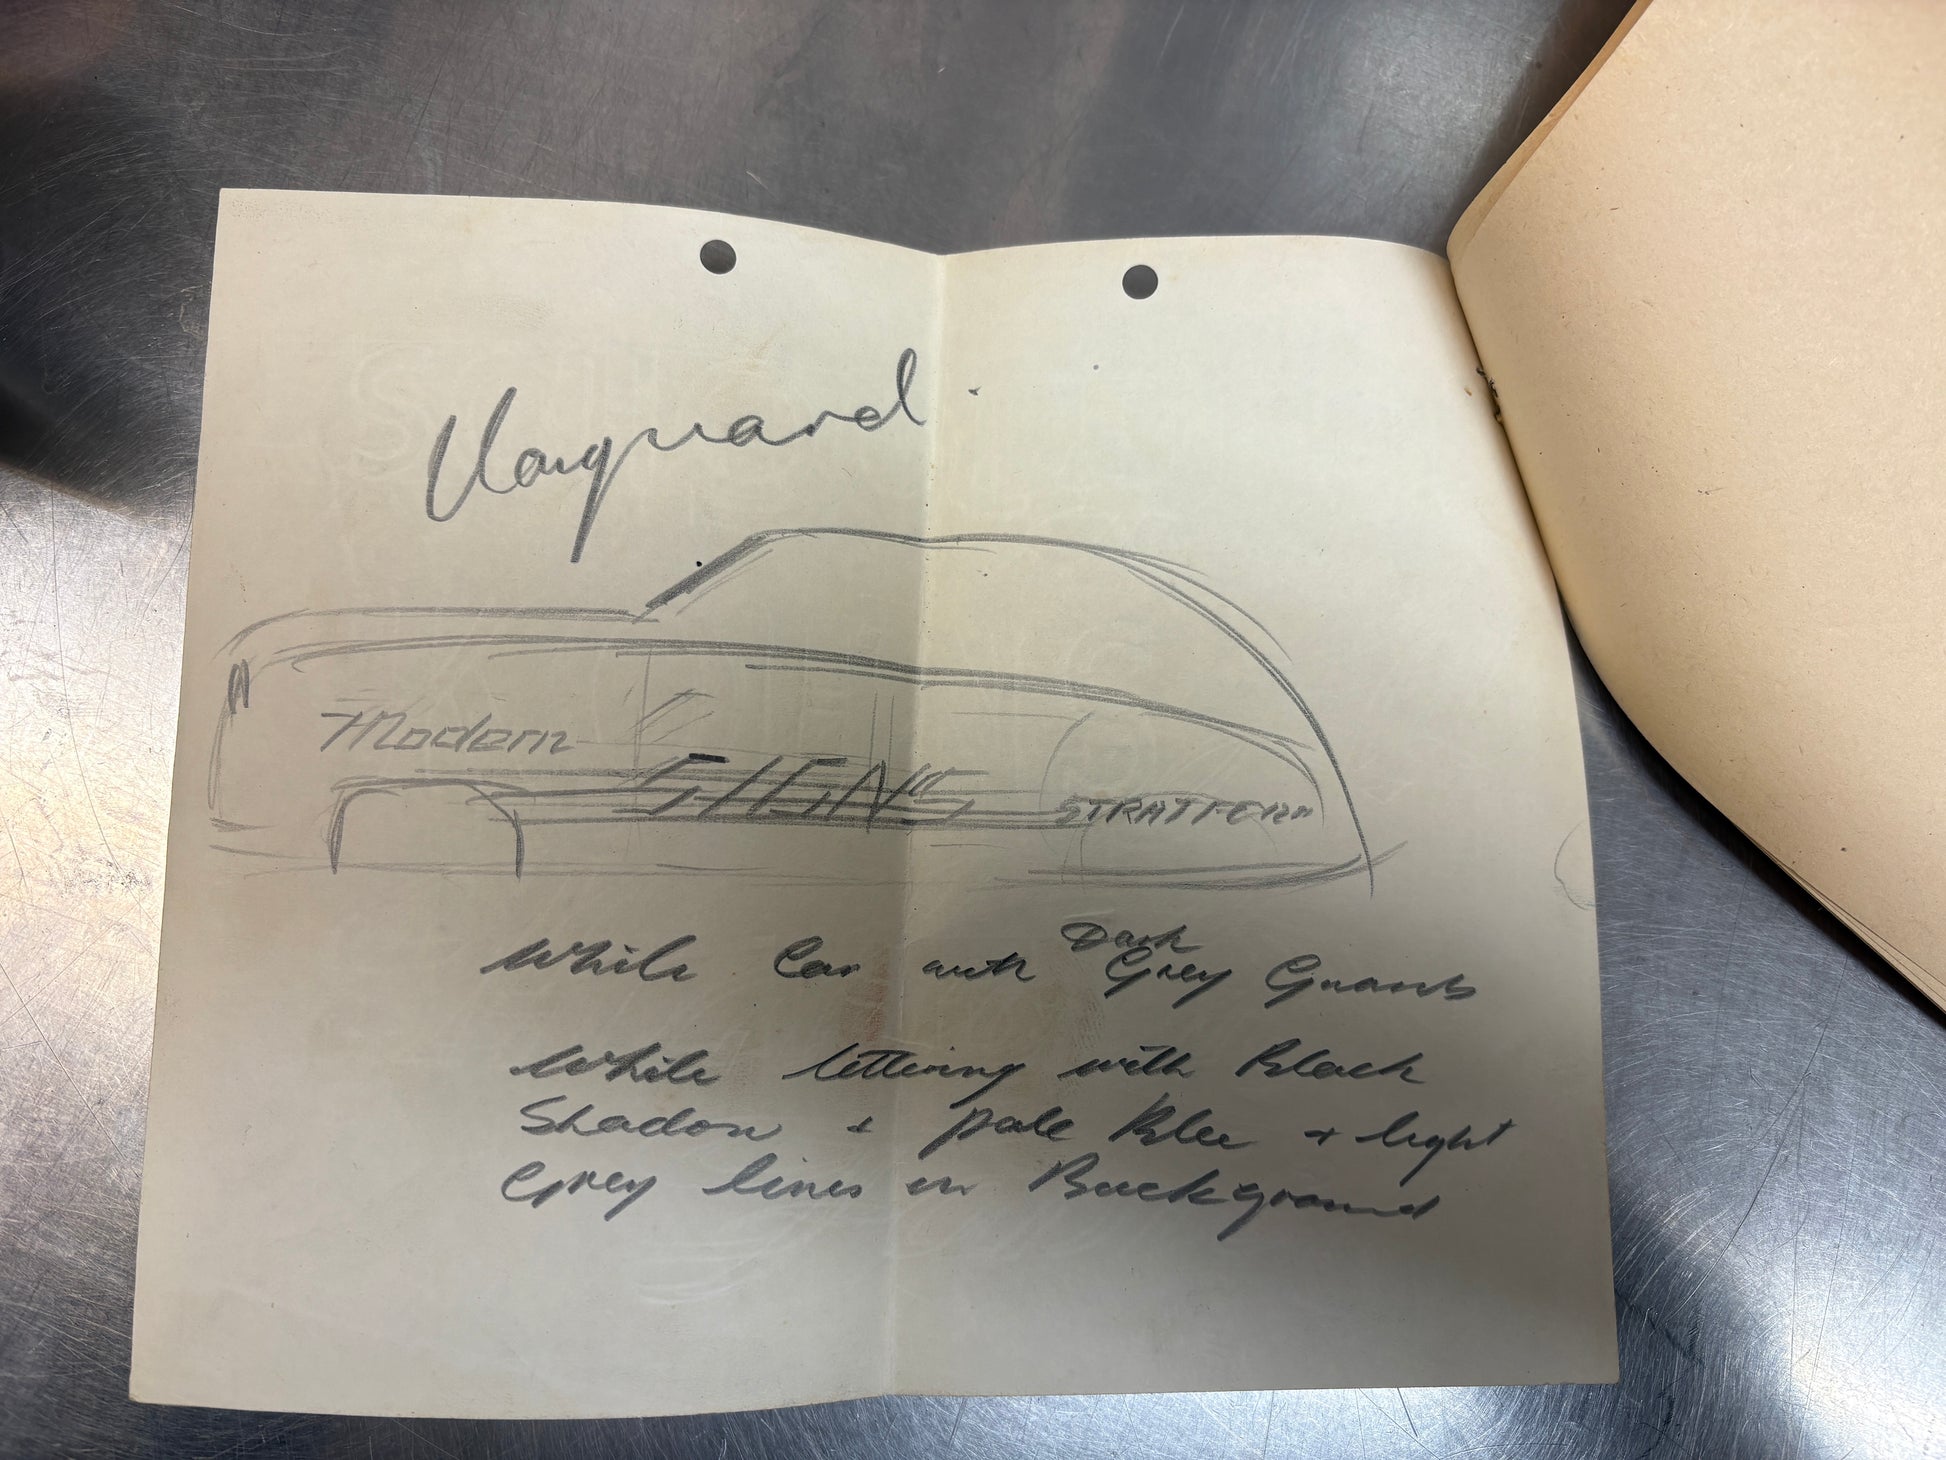 Vanguard.
Modern
SIGNS
STRATFORD
White Car with Dark Grey Guards
White lettering with Black
Shadow + pale Blue + light
Grey lines in Background